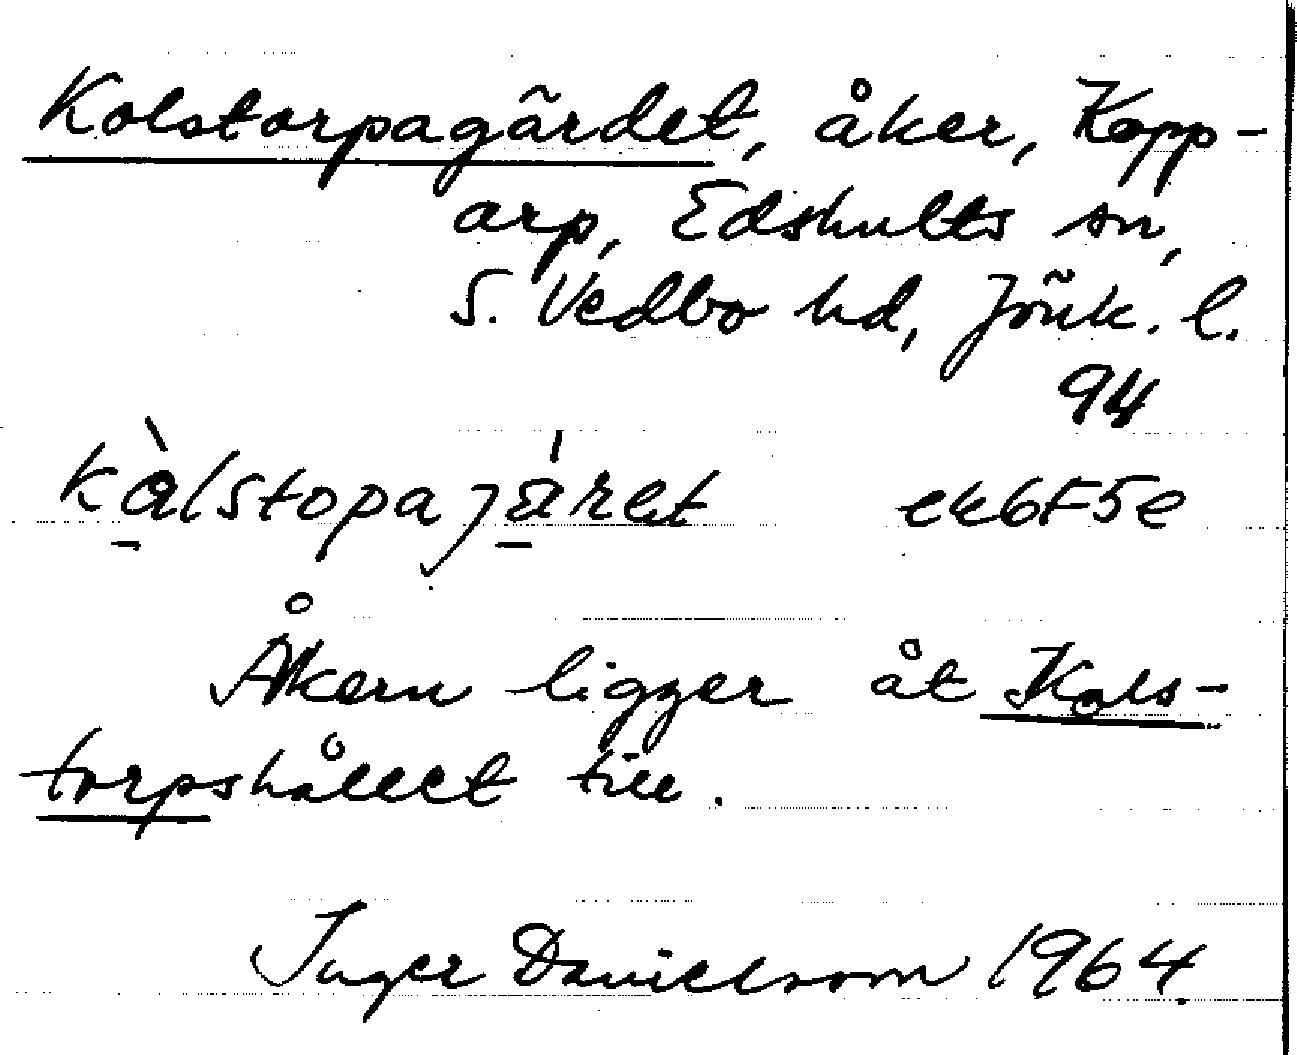 Kolstorpagärdet, åker, Kopp-
arp, Edshults sn,
S. Vedbo hd, Jönk. l.
94
kòlstopajä́ret ek6F5e
Åkern ligger åt Kols-
torpshållet till.
Inger Danielsson 1964.